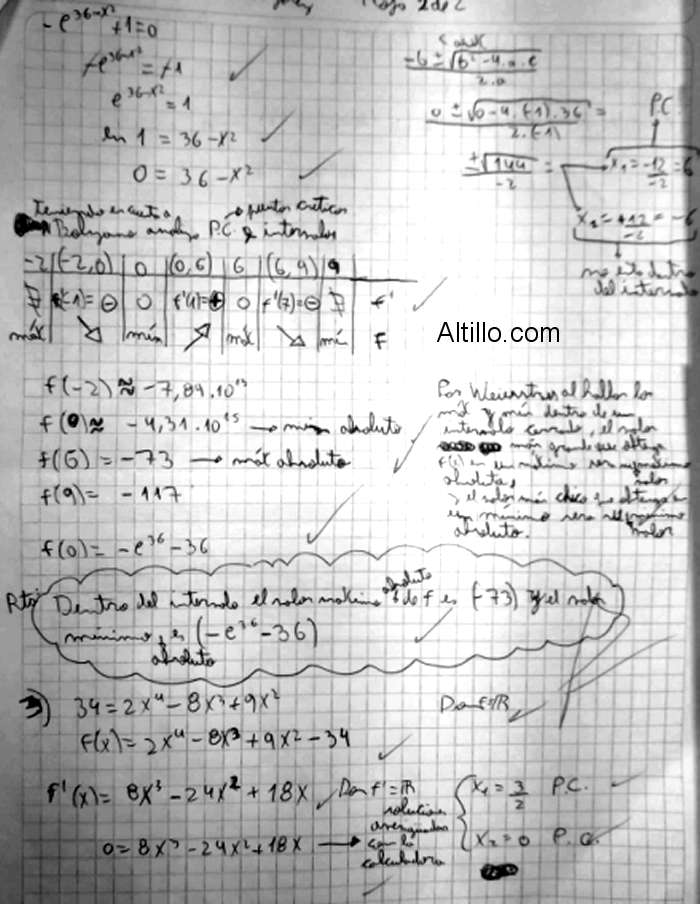 Hoja 2 de 2
-e^{36-x²} + 1 = 0
-e^{36-x²} = -1
e^{36-x²} = 1
ln 1 = 36 - x²
0 = 36 - x²
-b ± √(b² - 4.a.c)
2.a
0 ± √(0 - 4.(-1).36) =
2.(-1)
± √144 =
-2
P.C.
x₁ = -12/-2 = 6
x₂ = +12/-2 = -6
no está dentro
del intervalo
Teniendo en cuenta a → puntos críticos
Bolzano analizo P.C. e intervalos
-2 | (-2,0) | 0 | (0,6) | 6 | (6,9) | 9
∄ | f'(-1)= ⊖ | 0 | f'(1)= ⊕ | 0 | f'(7)= ⊖ | ∄ | f'
máx | ↘ | mín | ↗ | máx | ↘ | mí | F
Altillo.com
f(-2) ≈ -7,89.10¹³
f(0) ≈ -4,31.10¹⁵ → mín absoluto
f(6) = -73 → máx absoluto
f(9) = -117
f(0) = -e³⁶ - 36
Por Weierstras al hallar los
máx y mín dentro de un
intervalo cerrado, el valor
más grande que obtenga
f(x) en un máximo será
absoluto, valor
y el valor más chico que obtenga
un mínimo será
absoluto. valor
Rta: Dentro del intervalo el valor máximo absoluto de f es (-73) y el valor
mínimo, es (-e³⁶ - 36)
absoluto
3) 34 = 2x⁴ - 8x³ + 9x²
Dom f = ℝ
f(x) = 2x⁴ - 8x³ + 9x² - 34
f'(x) = 8x³ - 24x² + 18x Dom f' = ℝ
0 = 8x³ - 24x² + 18x → soluciones
averiguadas
con la
calculadora
x₁ = 3/2 P.C.
x₂ = 0 P.C.